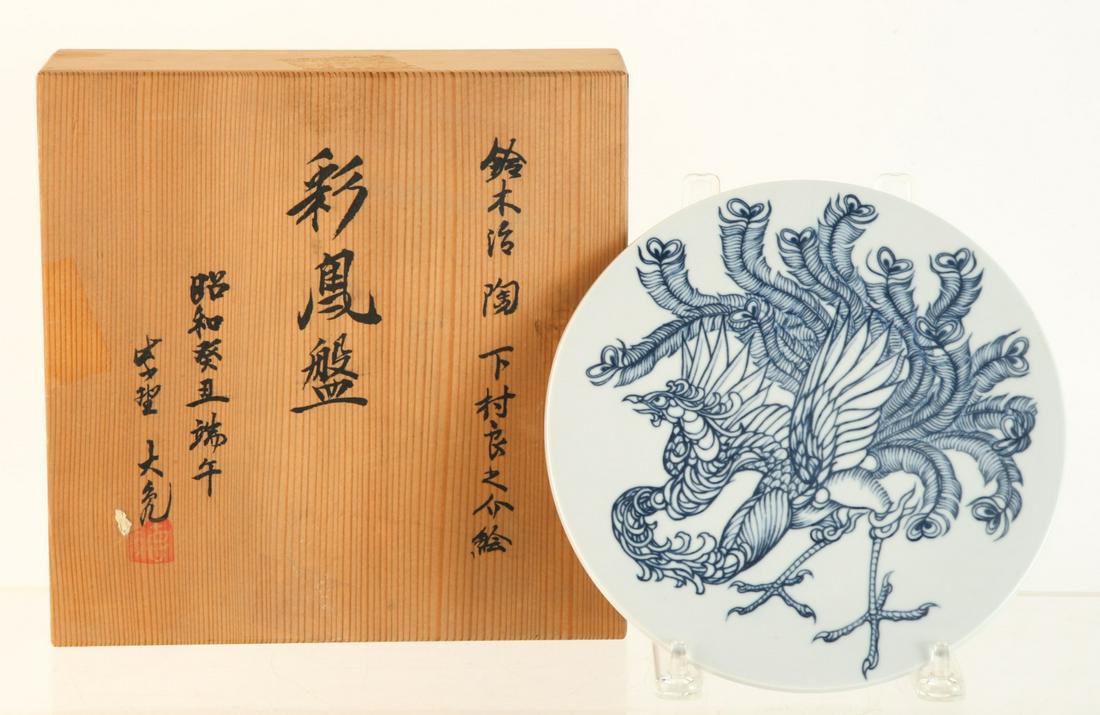 鈴木治陶 下村良之介絵
彩鳳盤
昭和癸丑端午
大